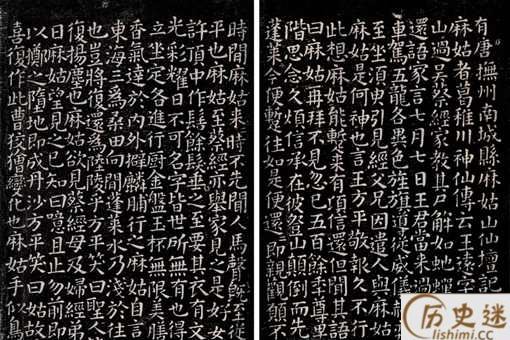 有唐撫州南城縣麻姑山仙壇記
麻姑者葛稚川神仙傳云王遠字
山過吳蔡經家教其尸解如蛇蟬
還語家言七月七日王君當來過
車駕五龍各異色旌旗導從威儀
至坐須臾引見經父兄因遣人與麻姑
麻姑是何神也言王方平敬報久不行
此想麻姑能暫來有頃信還但聞其語
曰麻姑再拜不見忽已五百餘年尊卑
階思念久煩信承在彼登山顛倒而先
蓬萊今便暫往如是便還還即親觀願不
時間麻姑來時不先聞人馬聲既至從
平也麻姑至蔡經亦舉家見之是好女
許頂中作髻餘髮垂之至要其衣有文
光彩耀日不可名字皆世所無有也得
立坐定各進行廚金盤玉杯無限美膳
香氣達於內外擗麟脯行之麻姑自言
東海三為桑田向間蓬萊水乃淺於往
也豈將復還為陸陵乎方平笑曰聖人
復揚塵也麻姑欲見蔡經母及婦經弟
日麻姑望見之已知曰噫且止勿前即
以擲之墮地即成丹沙方平笑曰姑故
喜復作此曹狡獪變化也麻姑手似鳥
历史迷
lishimi.cc